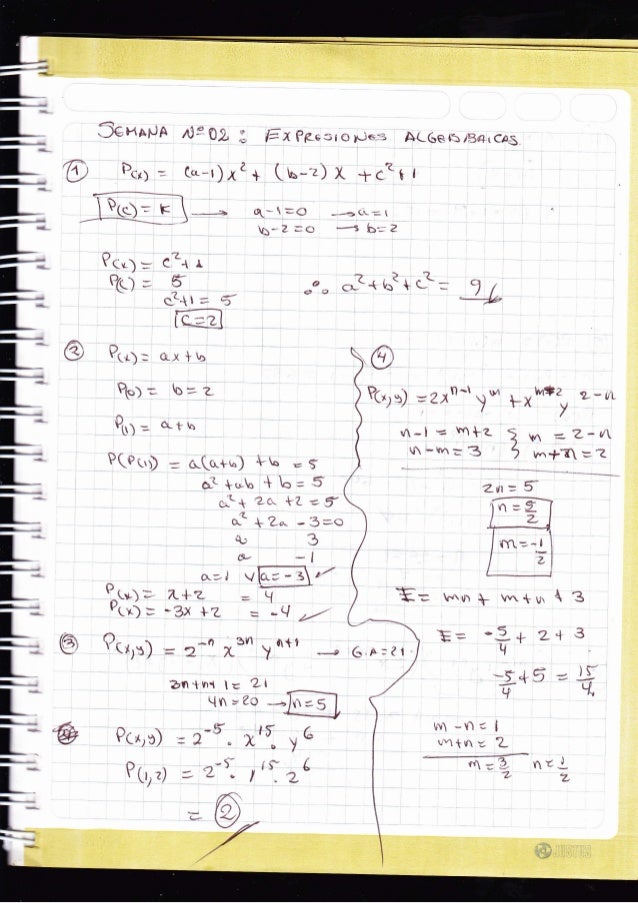 SEMANA Nº 02 : EXPRESIONES ALGEBRAICAS
① P(x) = (a-1)x² + (b-2)x + c²+1
P(c) = K → a-1=0 → a=1
b-2=0 → b=2
P(x) = c²+1
P(c) = 5
c²+1 = 5
c=2
∴ a²+b²+c² = 9
② P(x) = ax+b
P(0) = b = 2
P(1) = a+b
P(P(1)) = a(a+b) + b = 5
a²+ab+b = 5
a²+2a+2 = 5
a²+2a-3=0
a 3
a -1
a=1 ∨ a=-3
P(x) = x+2 = 4
P(x) = -3x+2 = -4
③ P(x,y) = 2⁻ⁿ x³ⁿ yⁿ⁺¹ → G.A=21
3n+n+1 = 21
4n=20 → n=5
P(x,y) = 2⁻⁵ . x¹⁵ . y⁶
P(1,2) = 2⁻⁵ . 1¹⁵ . 2⁶
= 2
④
P(x,y) = 2xⁿ⁻¹ yᵐ + xᵐ⁺² y²⁻ⁿ
n-1 = m+2 } m = 2-n
n-m=3 } m+n=2
2n=5
n=5/2
m=-1/2
E = mn + m+n + 3
E = -5/4 + 2+3
-5/4 +5 = 15/4
m-n=1
m+n=2
m=3/2 n=1/2
JUSTUS